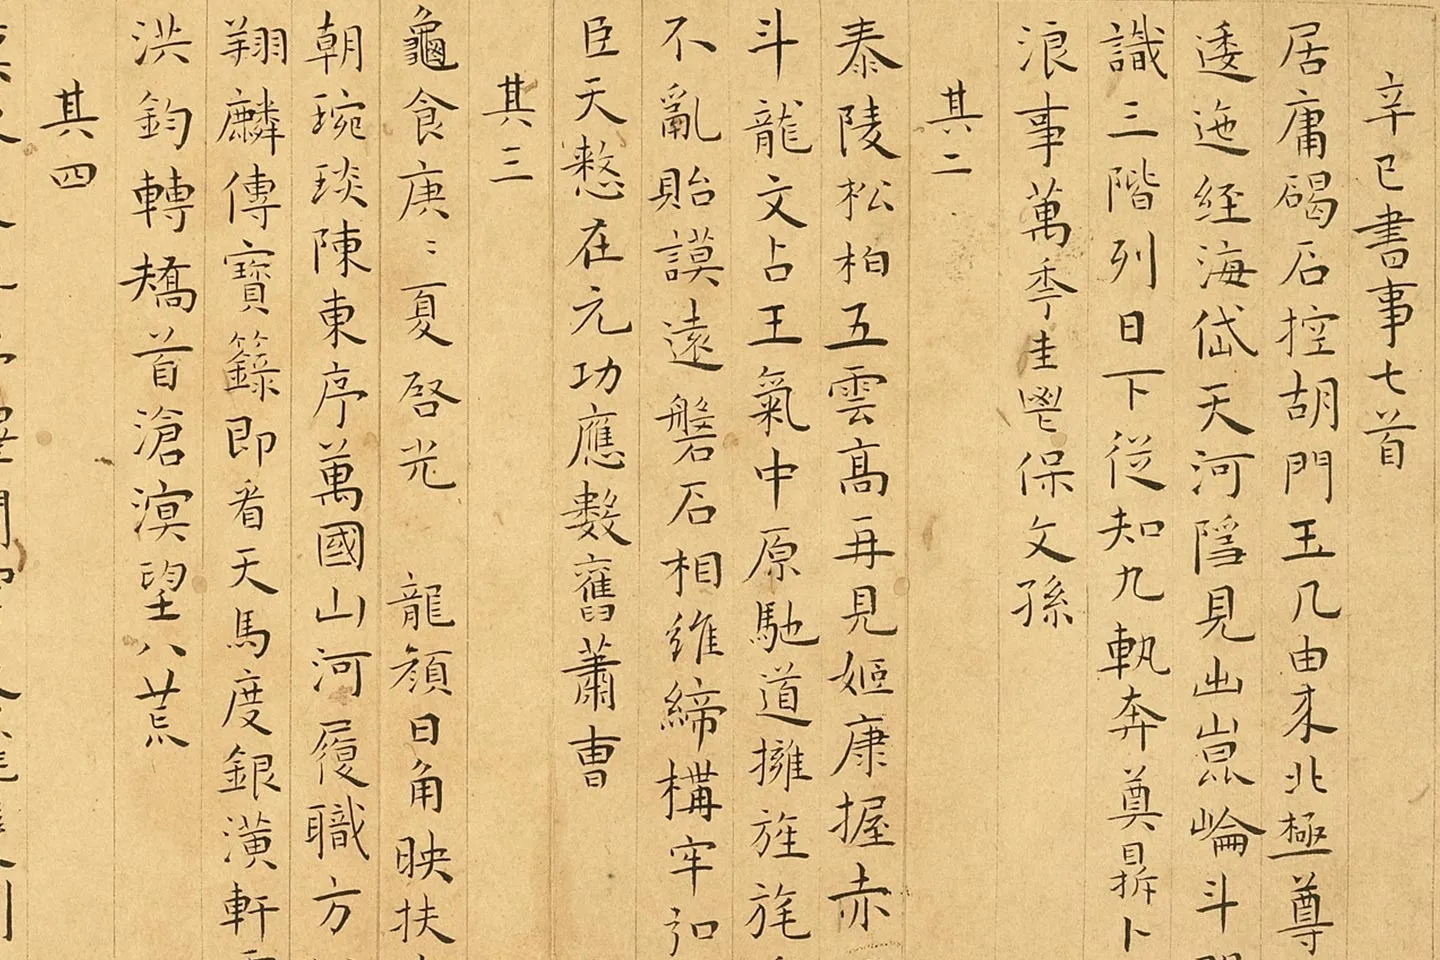 辛巳書事七首
居庸碣石控胡門玉几由來北極尊
逶迤經海岱天河隱見出崑崙斗
識三階列日下從知九執奔奠貝拆卜
浪事萬季圭鬯保文孫
其二
泰陵松柏五雲高再見姬康握赤
斗龍文占王氣中原馳道擁旌旄
不亂貽謨遠磐石相維締構牢
臣天憖在元功應數舊蕭曹
其三
龜食庚〻夏啓光 龍顏日角映扶
朝琬琰陳東序萬國山河履職方
翔麟傳寶籙即看天馬度銀潢軒
洪鈞轉矯首滄溟望八荒
其四